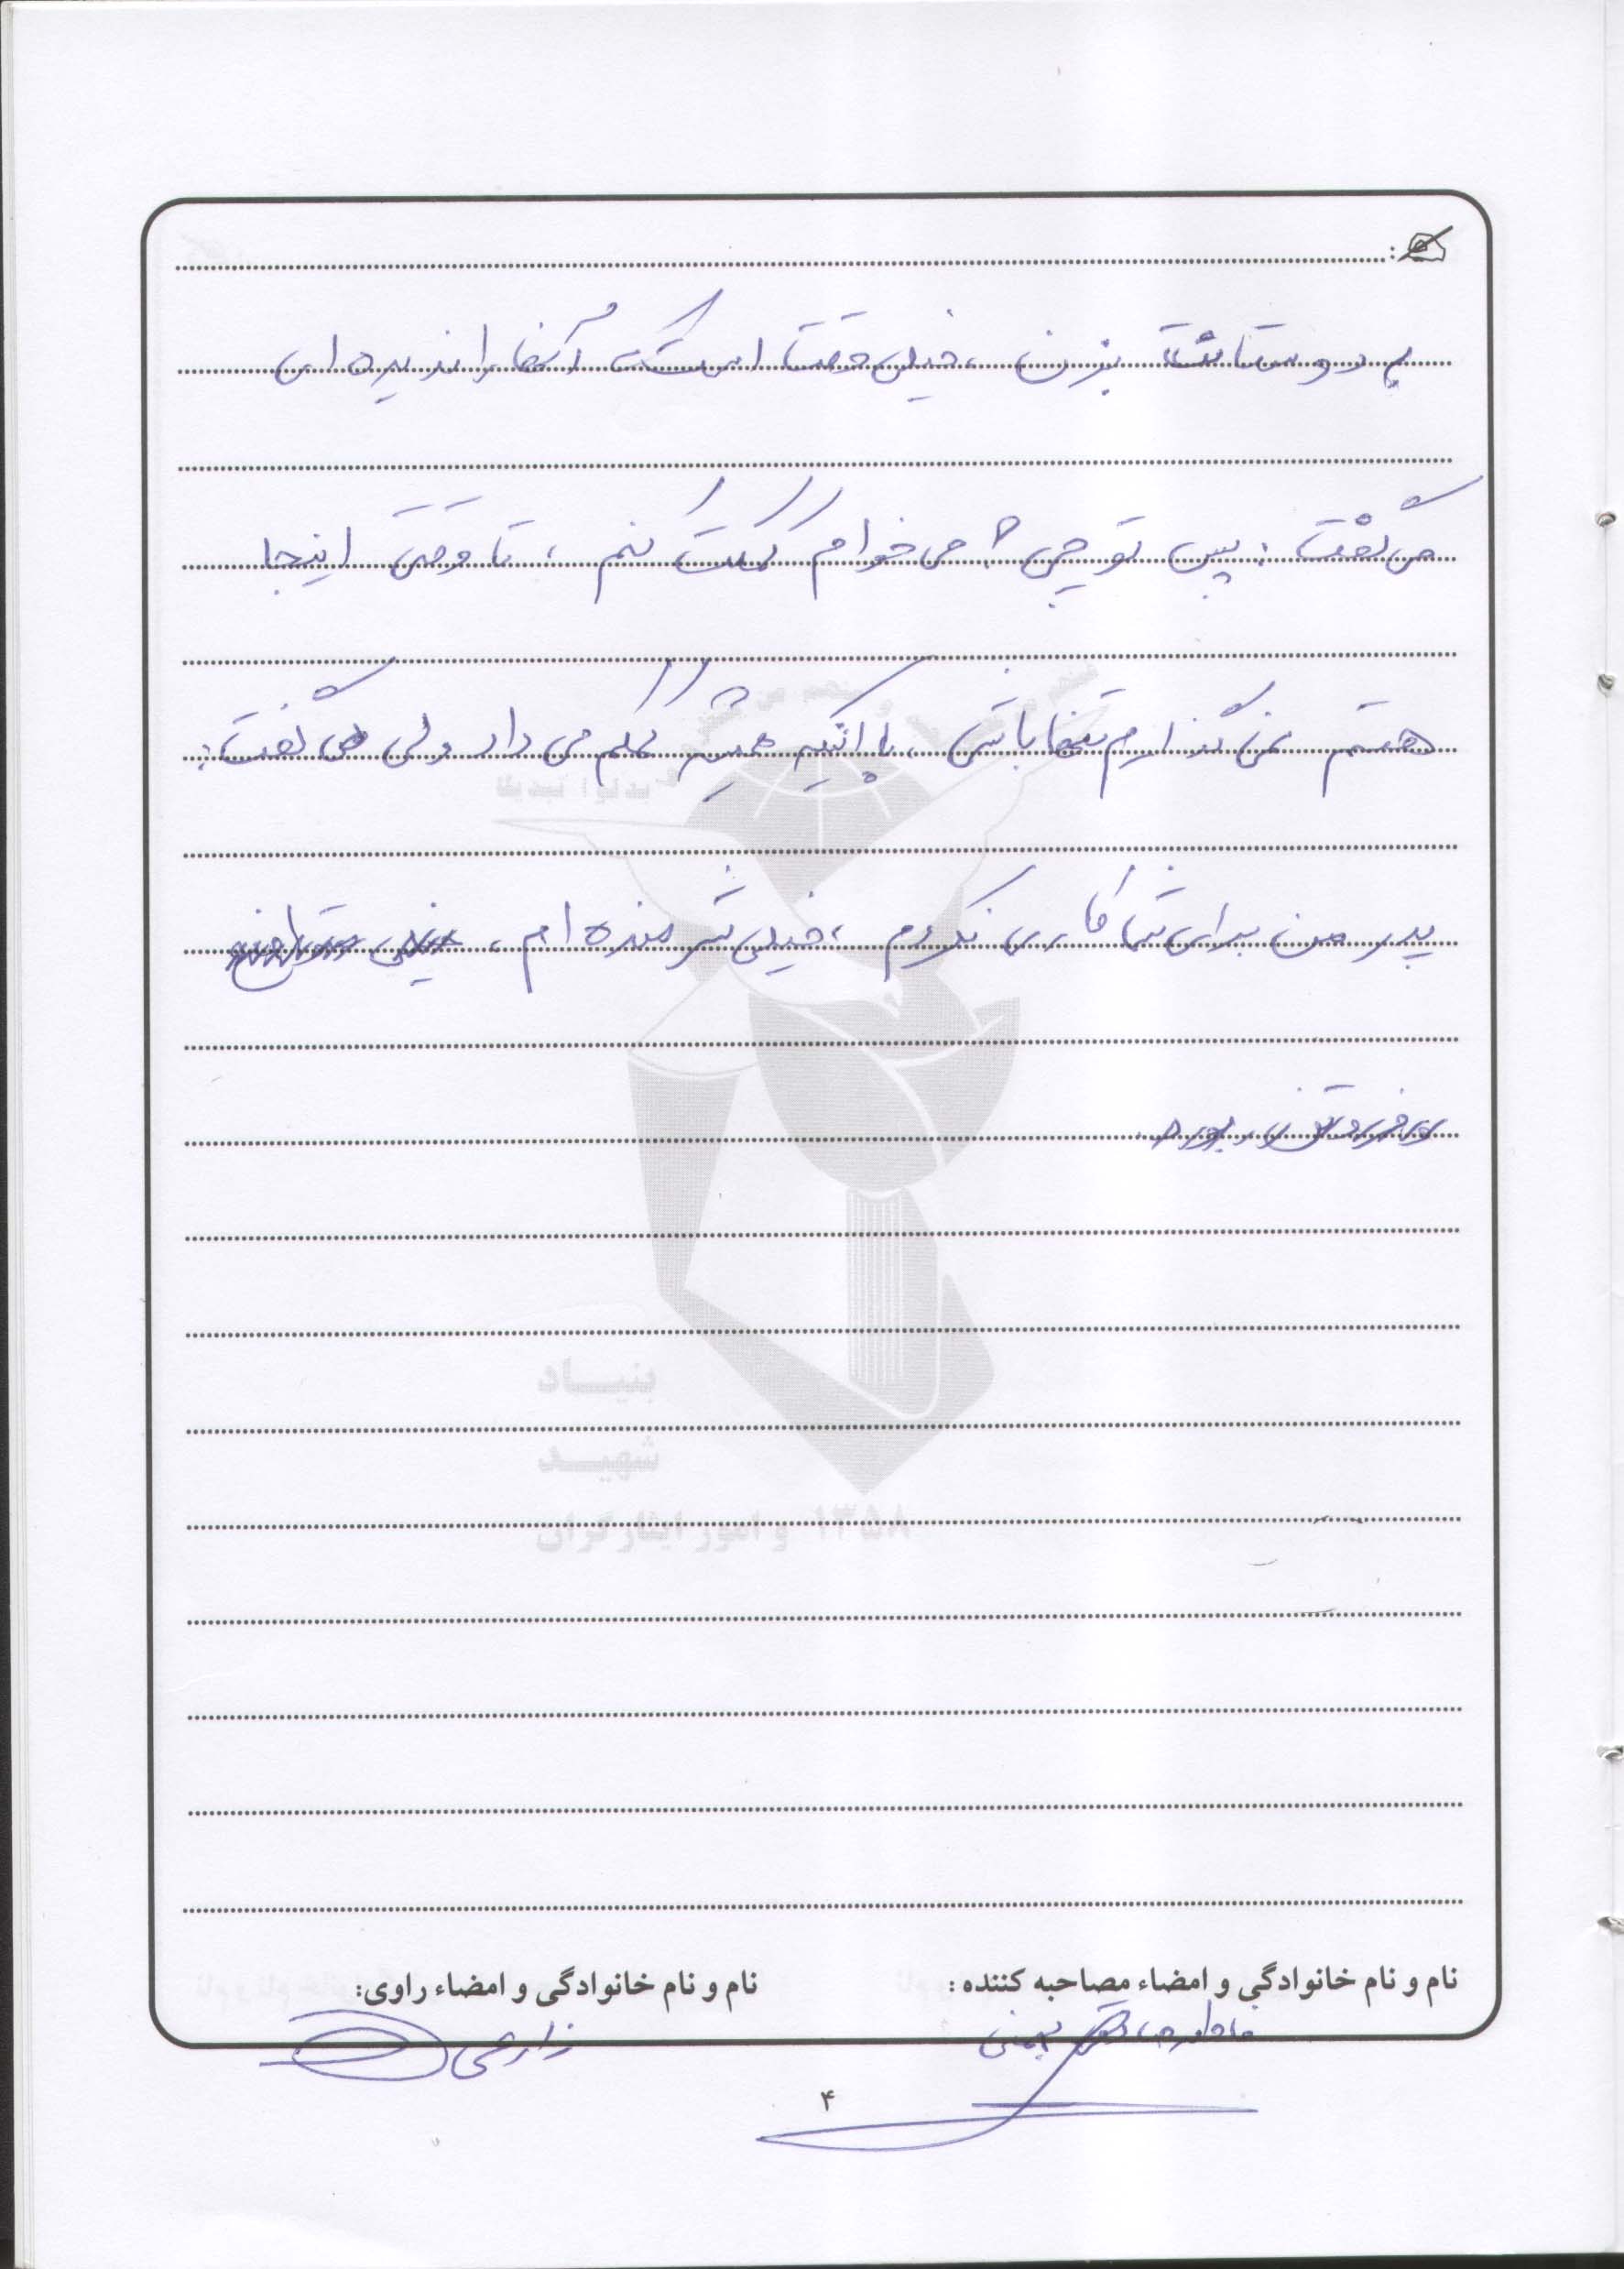 به دوستانت بزن ، خیلی وقت است که آنها را ندیده ای
می گفت : پس تو چی ؟ می خوام کمکت کنم ، تا وقتی اینجا
هستم نمی گذارم تنها باشی ، با اینکه همیشه کمکم می داد ولی می گفت :
پدر من برای شما کاری نکردم ، خیلی شرمنده ام ،
بنیاد
شهید
و امور ایثارگران ۱۳۵۸
نام و نام خانوادگی و امضاء مصاحبه کننده :
نام و نام خانوادگی و امضاء راوی:
زارعی
۴